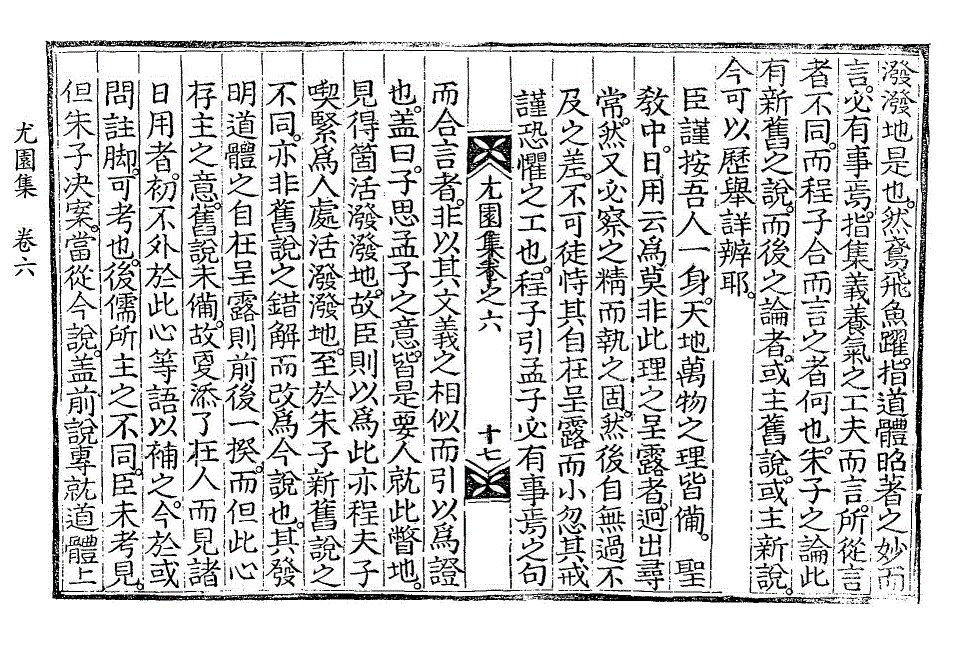 潑潑地是也。然鳶飛魚躍。指道體昭著之妙而
言。必有事焉。指集義養氣之工夫而言。所從言
者不同。而程子合而言之者何也。朱子之論此
有新舊之說。而後之論者。或主舊說。或主新說。
今可以歷舉詳辨耶。
臣謹按吾人一身。天地萬物之理皆備。聖
敎中。日用云爲莫非此理之呈露者。迥出尋
常。然又必察之精而執之固。然後自無過不
及之差。不可徒恃其自在呈露而小忽其戒
謹恐懼之工也。程子引孟子必有事焉之句
尤園集卷之六 十七
而合言者。非以其文義之相似而引以爲證
也。蓋曰。子思孟子之意。皆是要人就此瞥地。
見得箇活潑潑地。故臣則以爲此亦程夫子
喫緊爲人處活潑潑地。至於朱子新舊說之
不同。亦非舊說之錯解而改爲今說也。其發
明道體之自在呈露則前後一揆。而但此心
存主之意。舊說未備。故更添了在人而見諸
日用者。初不外於此心等語以補之。今於或
問註脚。可考也。後儒所主之不同。臣未考見。
但朱子决案。當從今說。蓋前說專就道體上
尤園集 卷六